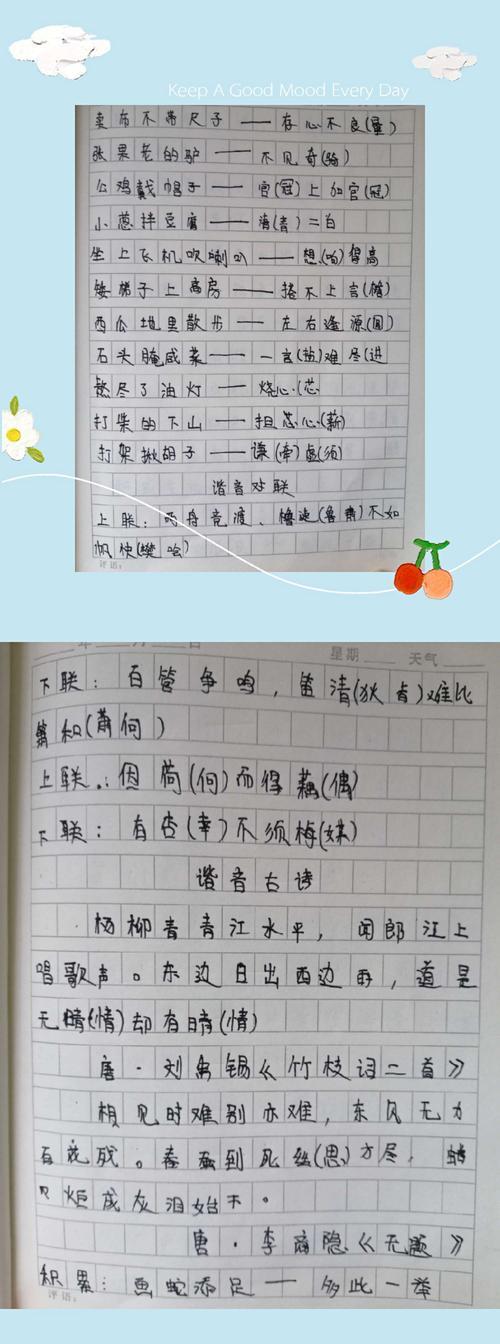 Keep A Good Mood Every Day
卖布不带尺子——存心不良(量)
张果老的驴——不见奇(骑)
公鸡戴帽子——官(冠)上加官(冠)
小葱拌豆腐——清(青)二白
坐上飞机吹喇叭——想(响)得高
矮梯子上高房——搭不上言(檐)
西瓜地里散步——左右逢源(圆)
石头腌咸菜——一言(盐)难尽(进
熬尽了油灯——烧心(芯
打柴的下山——担心(薪)
打架揪胡子——谦(牵)虚(须)
谐音对联
上联：两舟竞渡、橹速(鲁肃)不如
帆快(樊哙)
评语：
年 月 日
星期 天气
下联：百管争鸣，笛清(狄青)难比
箫和(萧何)
上联：因荷(何)而得藕(偶)
下联：有杏(幸)不须梅(媒)
谐音古诗
杨柳青青江水平，闻郎江上
唱歌声。东边日出西边雨，道是
无晴(情)却有晴(情)
唐·刘禹锡《竹枝词二首》
相见时难别亦难，东风无力
百花残。春蚕到死丝(思)方尽，蜡
炬成灰泪始干。
唐·李商隐《无题》
积累：画蛇添足——多此一举
评语：